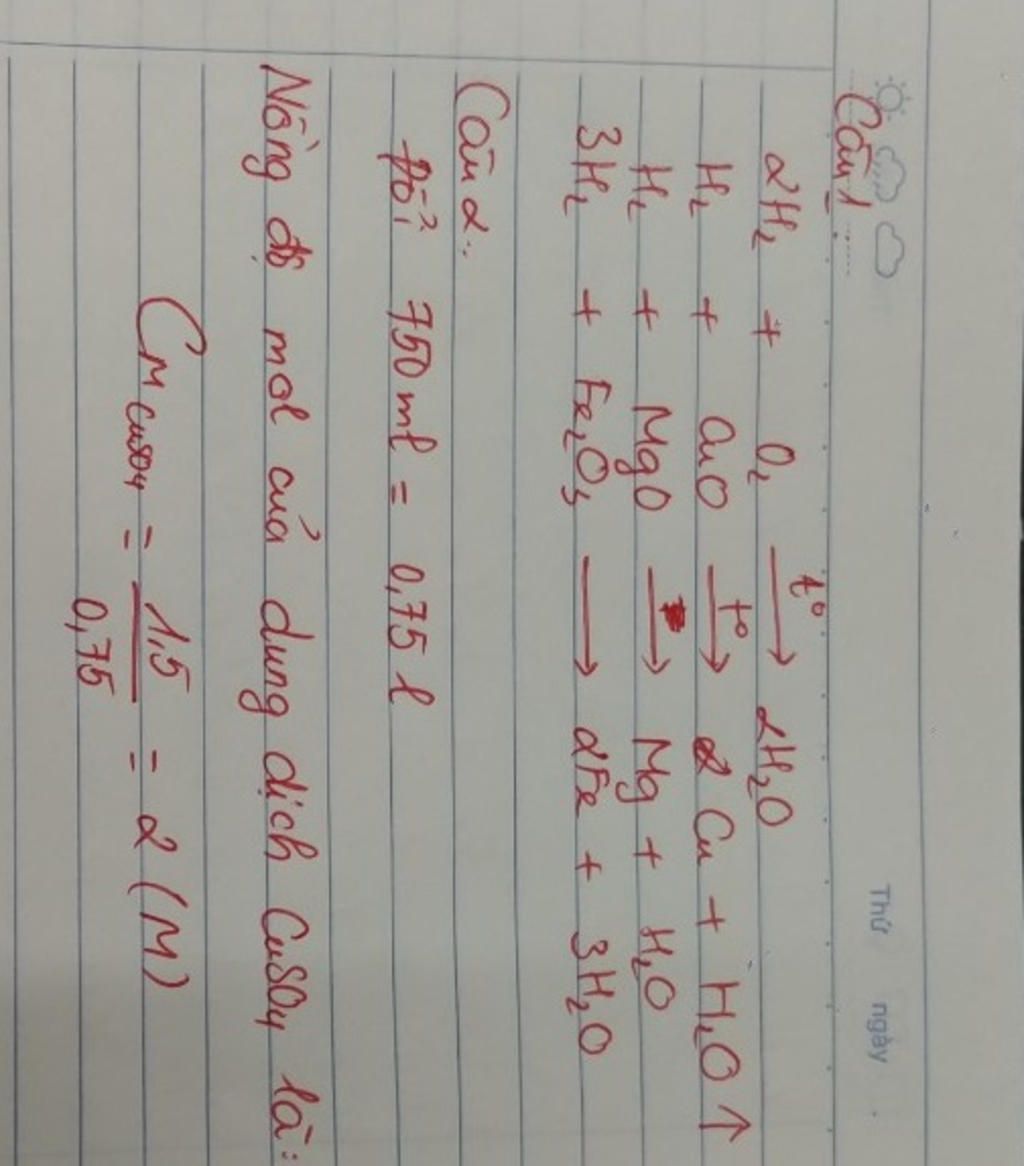 Thứ ngày
Câu 1
2H₂ + O₂ t° → 2H₂O
H₂ + CuO t° → Cu + H₂O ↑
H₂ + MgO → Mg + H₂O
3H₂ + Fe₂O₃ → 2Fe + 3H₂O
Câu 2:
Đổi 750 ml = 0,75 l
Nồng độ mol của dung dịch CuSO₄ là:
CM CuSO₄ = 1,5 / 0,75 = 2 (M)